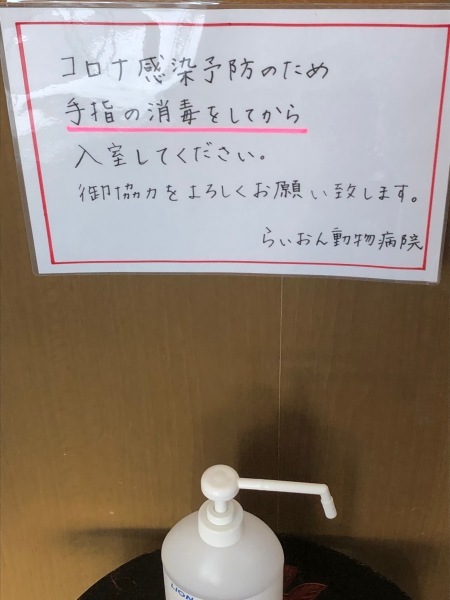 コロナ感染予防のため
手指の消毒をしてから
入室してください。
御協力をよろしくお願い致します。
らいおん動物病院
LION